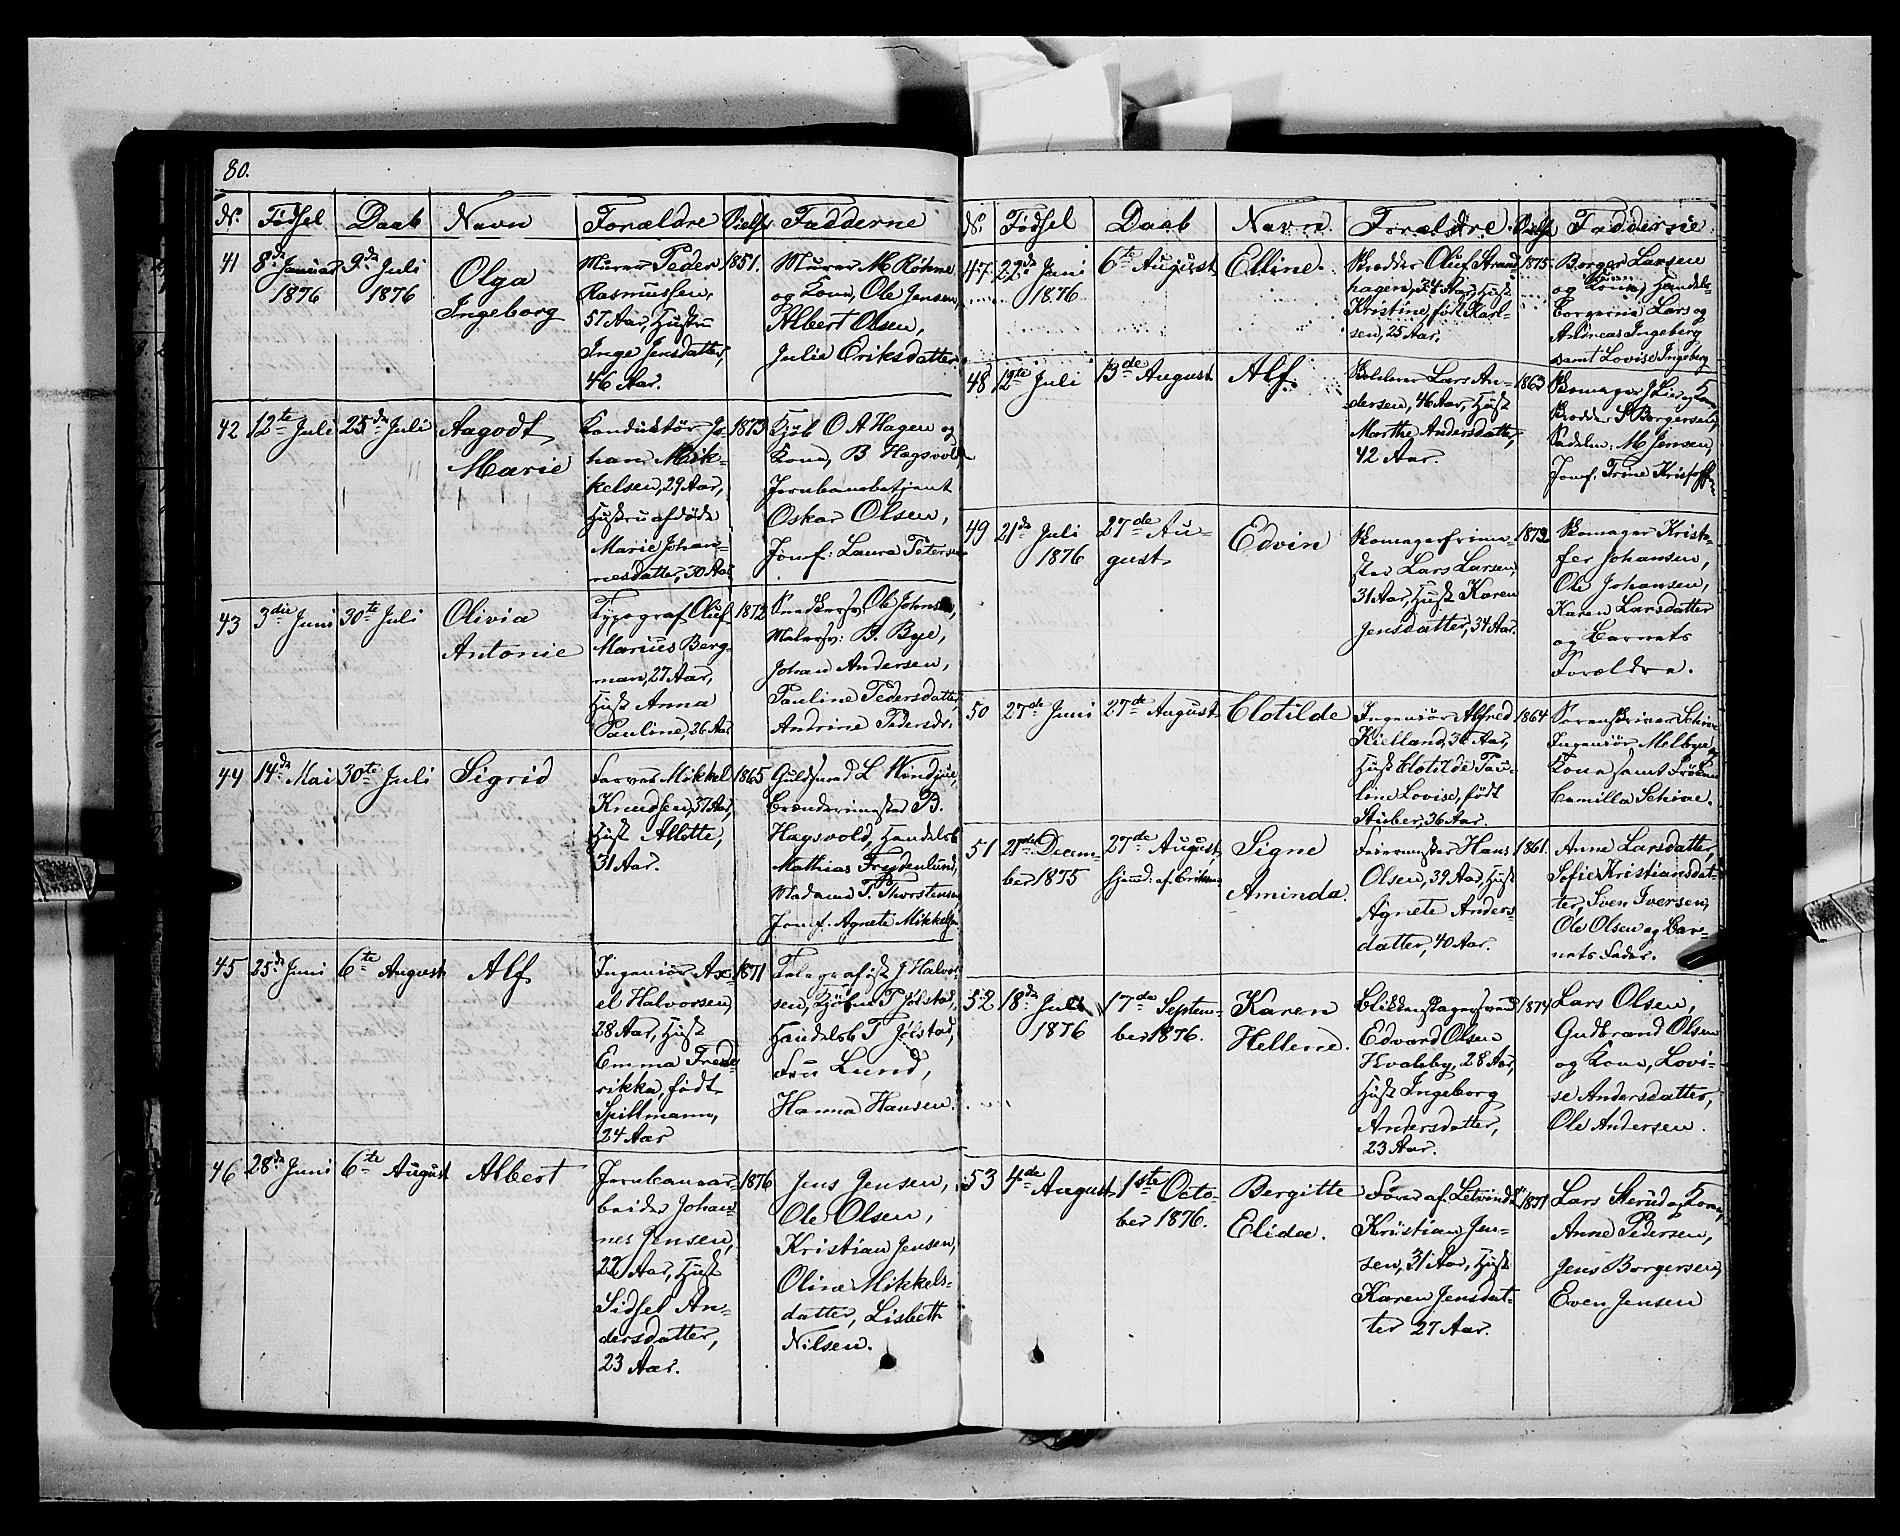 80.
N. Fødsel Daab Navn Forældre Vielse Fadderne
41 8de Januar 1876 9de Juli 1876
Olga
Ingeborg
Murer Peder
Rasmussen,
57 Aar, Hustru
Inge Jensdatter,
46 Aar.
1851.
Murer M Røhme
og Kone, Ole Jensen,
Albert Olsen,
Julie Eriksdatter.
42 12te Juli 25de Juli
Aagodt
Marie
Konduktør Jo-
han Mik-
kelsen, 29 Aar,
Hustru afdøde
Marie Johan-
nesdatter, 30 Aar
1873
Kjøb O A Hagen og
Kone, B Hagsvold
Jernbanebetjent
Oskar Olsen,
Jomf: Laura Petersen
43 3die Juni 30te Juli
Olivia
Antonie
Typograf Oluf
Marius Berg-
man, 27 Aar,
Hust Anna
Pauline, 26 Aar
1872
Snedkersv. Ole Johnsen,
Malersv: B. Bye,
Johan Andersen,
Pauline Pedersdatter,
Andrine Pedersdr.
44 14de Mai 30te Juli
Sigrid
Farver Mikkel
Knudsen, 37 Aar,
Hust Alette,
31 Aar.
1865
Guldsmed L
Brændevinsm B.
Hagsvold, Handelsb
Mathias Frydenlund,
Madame P. Thorstensen
Jomf: Agnete Mikkelsen
45 25de Juni 6te August
Alf.
Ingeniør Ax-
el Halvorsen,
28 Aar, Hust
Emma Frede-
rikka, født
Spillmann,
24 Aar
1871
Telegrafist J Halvor-
sen, Kjøbm P Jølstad,
Handelsb T Jølstad,
Fru Lund,
Hanna Hansen.
46 28de Juni 6te August
Albert
Jernbanear-
beider Johan-
nes Jensen,
22 Aar, Hust
Sidsel An-
dersdatter,
23 Aar.
1876
Jens Jensen,
Ole Olsen,
Kristian Jensen,
Oline Mikkels-
datter, Lisbeth
Nilsen.
N. Fødsel Daab Navn. Forældre. Vielse Fadderne.
47 22de Juni 1876. 6te August
Elline.
Skrædder Oluf Strand-
hagen, 24 Aar, Hust
Kristine, født Karl-
sen, 25 Aar.
1875.
Borger Larsen
og Kone, Handels-
borgerne Lars og
Andreas Ingeberg
samt Lovise Ingeberg
48 12te Juli 13de August
Alf.
Lars An-
dersen, 46 Aar, Hust
Marthe Andersdatter,
42 Aar.
1863
Skomager J Lie og Kone,
Skrædder S Borgersen,
Sadelm. M Jensen,
Jomf. Trine Kristoffe
49 21de Juli 1876 27de Au-
gust
Edvin
Skomagerfrime-
ster Lars Larsen,
31 Aar, Hust Karen
Jensdatter, 34 Aar.
1872
Skomager Kristof-
fer Johansen,
Ole Johansen,
Karen Larsdatter
og Barnets
Forældre.
50 27de Juni 27de August
Clotilde
Ingeniør Alfred
Kielland, 36 Aar,
Hust Clotilde Pau-
line Lovise, født
Stuber, 36 Aar.
1864
Sorenskriver Schive
Ingeniør Melbye og
Kone samt Frøken
Camilla Schive.
51 21de Decem-
ber 1875 27de August,
hjemd. af. Eriksen
Signe
Aminda.
Feiermester Hans
Olsen, 39 Aar, Hust
Agnete Anders-
datter, 40 Aar.
1861.
Anne Larsdatter,
Sofie Kristiansdat-
ter, Sven Iversen,
Ole Olsen og Bar-
nets Fader.
52 18de Juli 1876 17de Septem-
ber 1876.
Karen
Hellene.
Blikkenslagersvend
Edvard Olsen
Kvalsby, 28 Aar,
Hust Ingeborg
Andersdatter,
23 Aar.
1874
Lars Olsen,
Gudbrand Olsen
og Kone, Lovi-
se Andersdatter,
Ole Andersen.
53 4de August 1ste Octo-
ber 1876.
Bergitte
Elida.
Kristian Jen-
sen, 31 Aar, Hust
Karen Jensdat-
ter 27 Aar.
1871
Lars Sterud og Kone,
Anne Pedersen,
Jens Borgersen,
Even Jensen